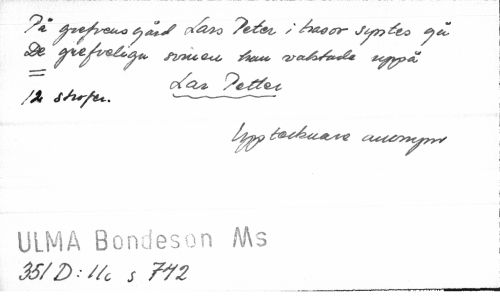 På grefvens gård Lars Peter i trasor syntes gå
De grefveliga svinen han vaktade uppå
Lars Petter
12 strofer.
Upptecknare anonym
ULMA Bondeson Ms
351 D:11c s 742